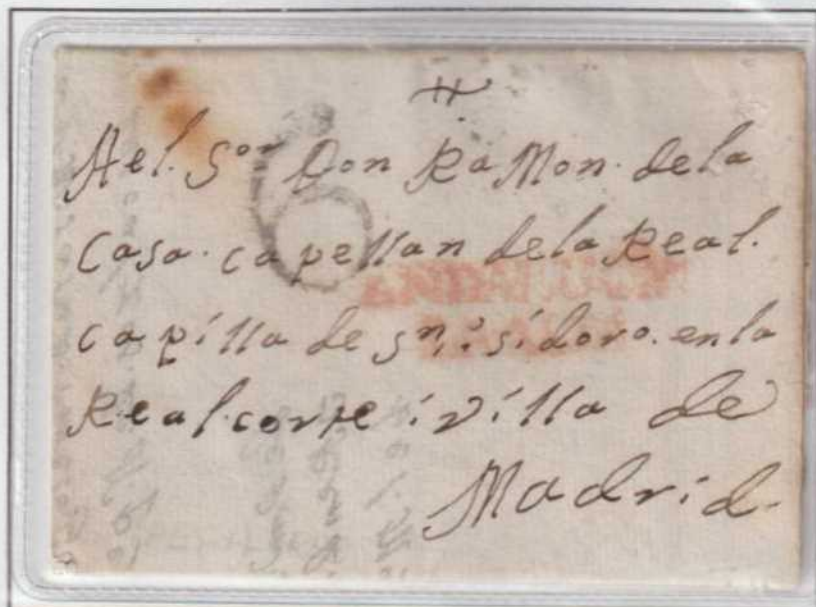 Ael. Sor Don RaMon. dela
Casa. capellan dela Real.
6
capilla de sn. isidoro. enla
Real. corte i villa de
Madrid.